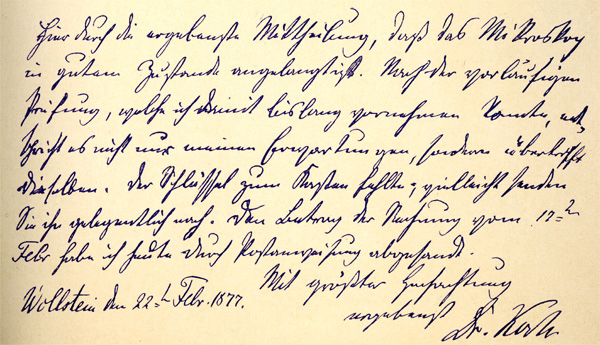 Hierdurch die ergebenste Mittheilung, daß das Mikroskop
in gutem Zustande angelangt ist. Nach der vorläufigen
Prüfung, welche ich damit bislang vornehmen konnte, ent-
spricht es nicht nur meinen Erwartungen, sondern übertrifft
dieselben. Der Schlüssel zum Kasten fehlte; vielleicht senden
Sie ihn gelegentlich nach. Den Betrag der Rechnung vom 17=ten
Febr habe ich heute durch Postanweisung abgesandt.
Mit größter Hochachtung
Wollstein den 22=t Febr. 1877.
ergebenst Dr. Koch